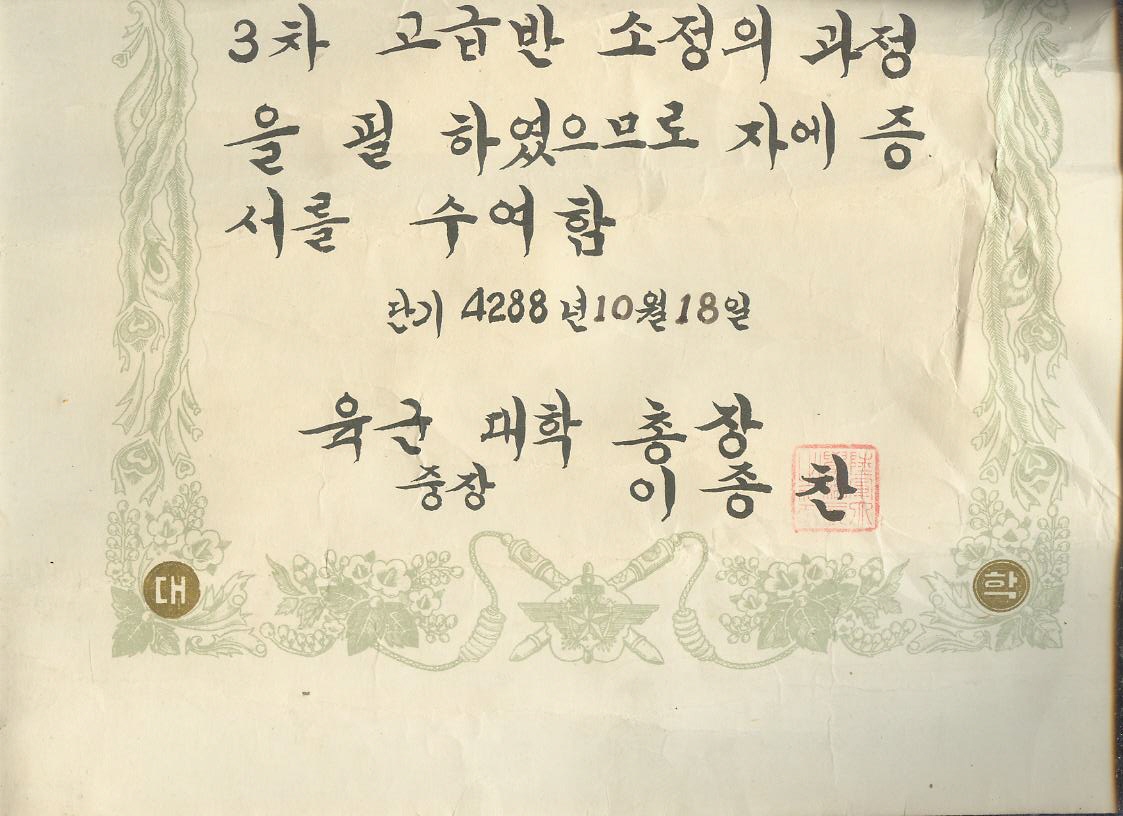 3차 고급반 소정의 과정
을 필 하였으므로 자에 증
서를 수여함
단기 4288년 10월 18일
육군 대학 총장
중장 이종찬
대 학